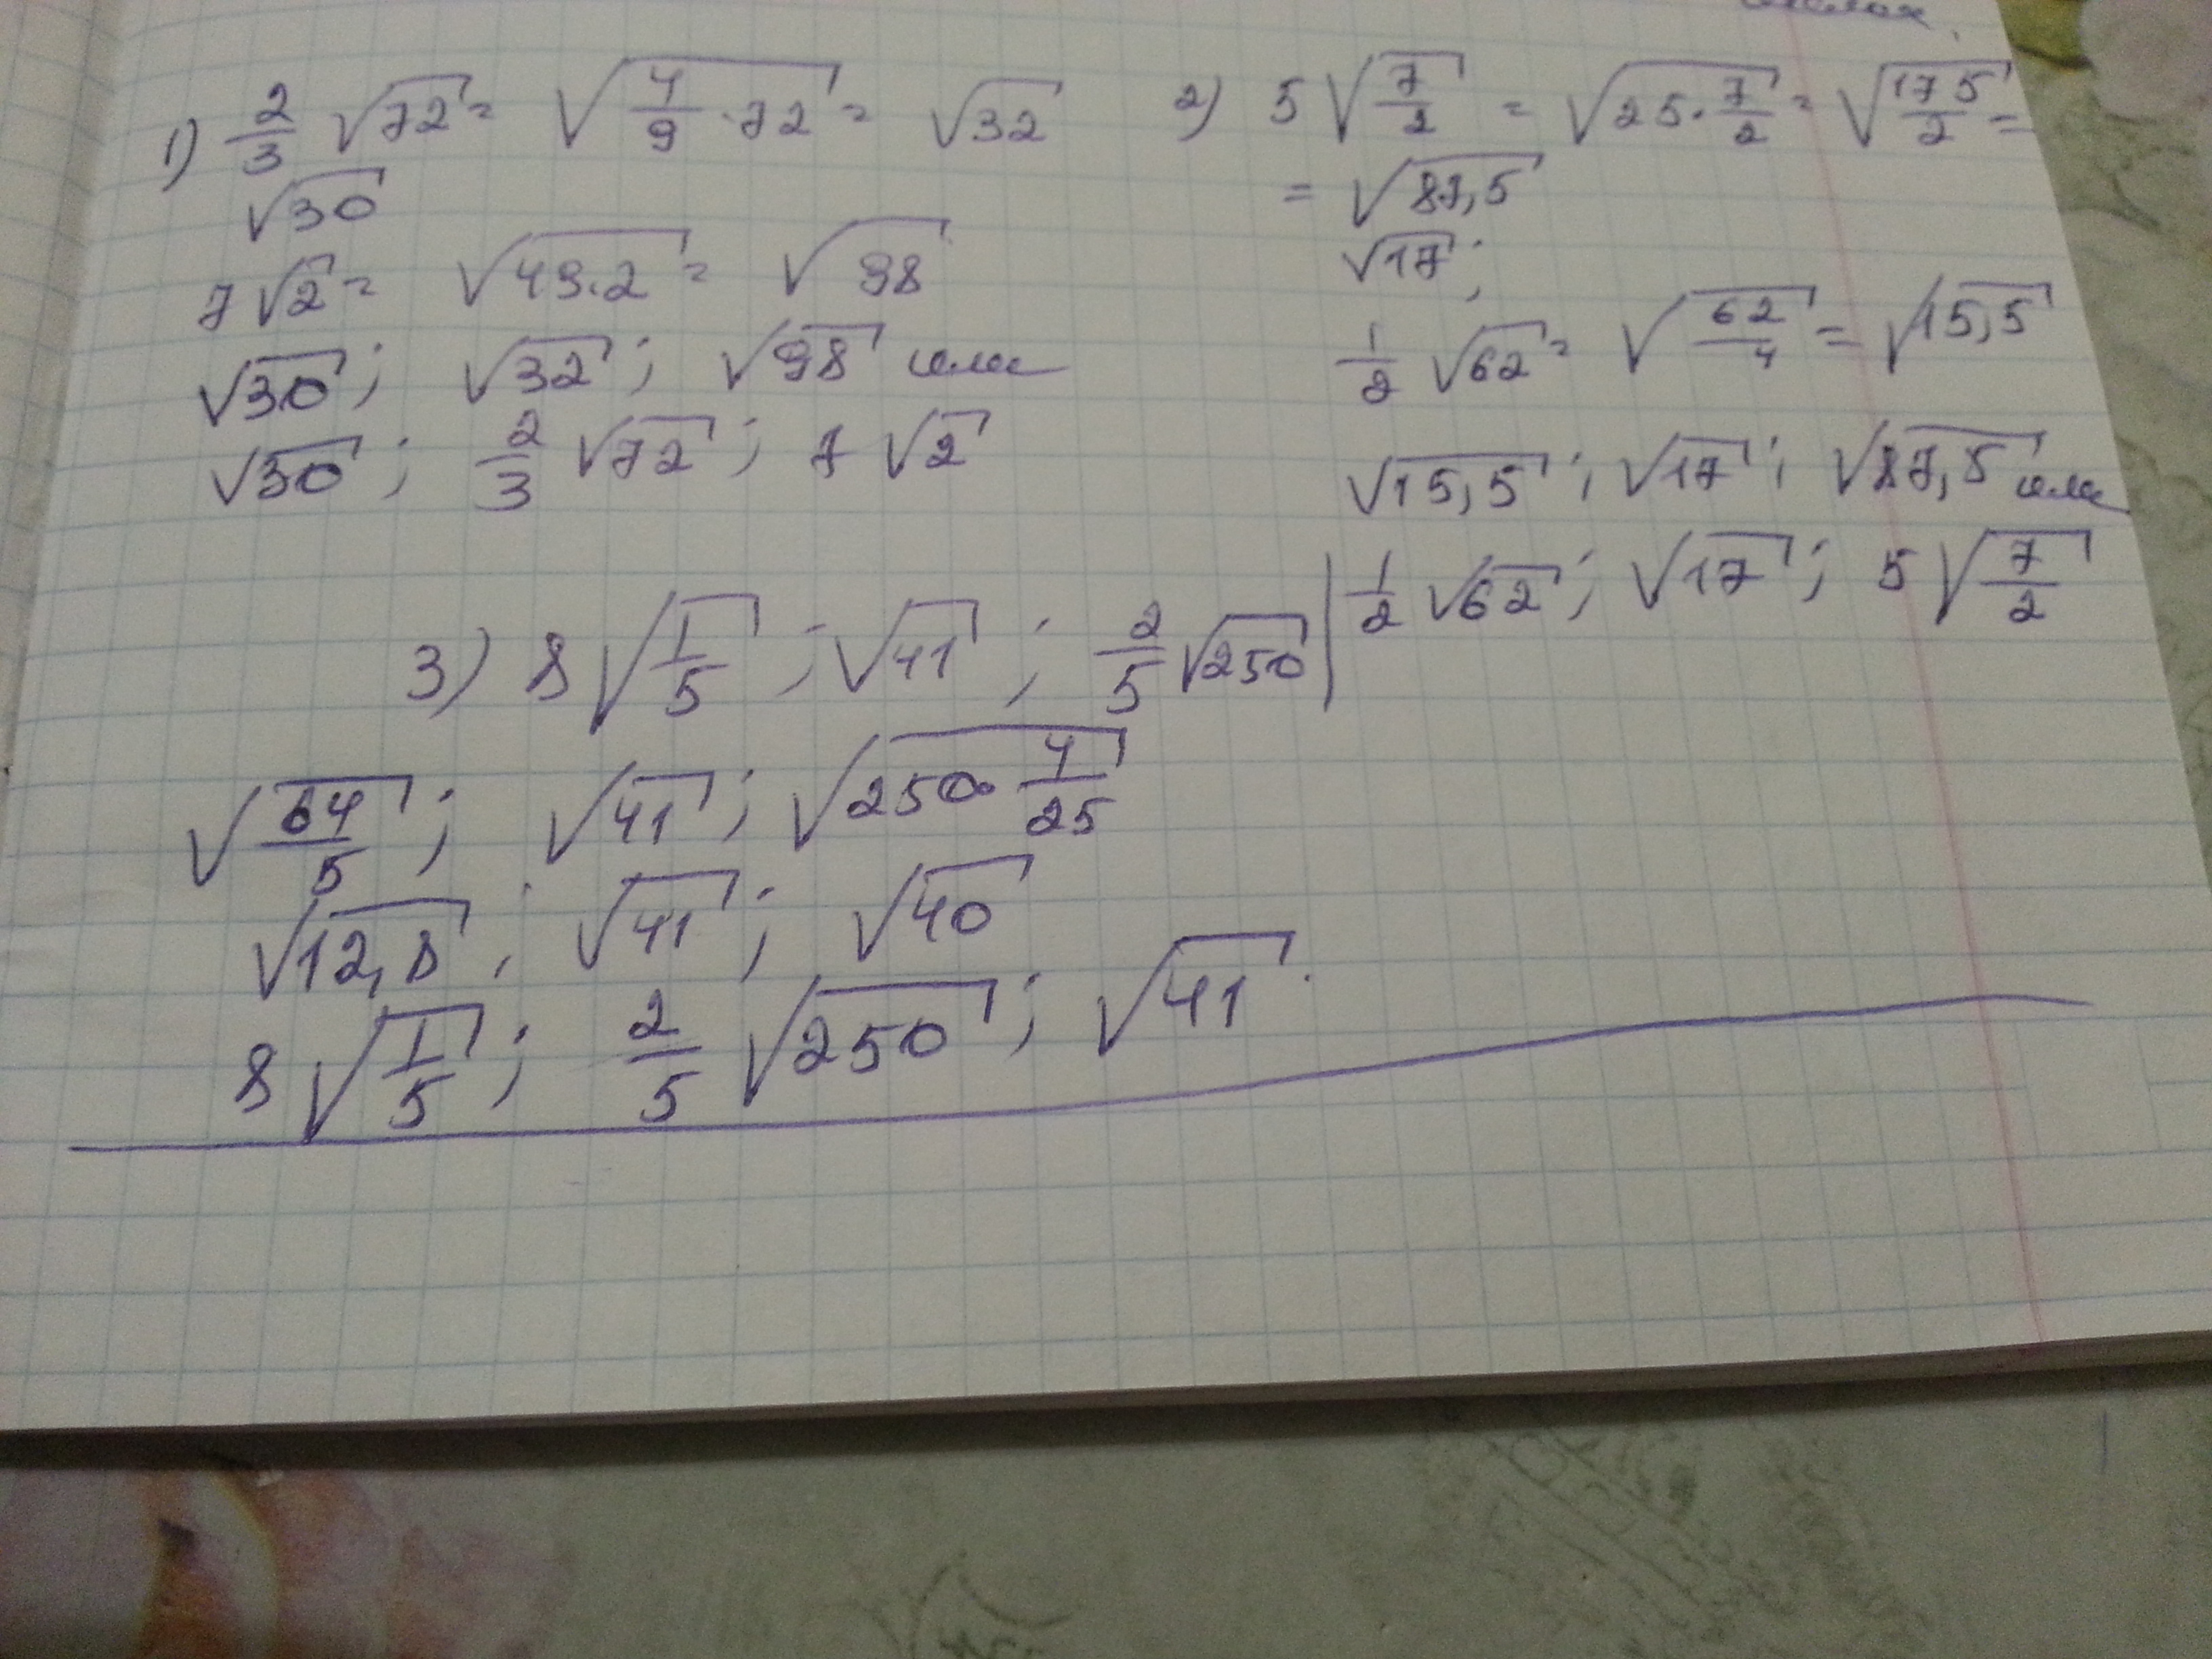 1) 2/3 √72 = √(4/9 · 72) = √32
√30
7√2 = √(49·2) = √98
√30; √32; √98 или
√30; 2/3 √72; 7√2
2) 5√(7/2) = √(25 · 7/2) = √(175/2) =
= √87,5
√17;
1/2 √62 = √(62/4) = √15,5
√15,5; √17; √87,5 или
1/2 √62; √17; 5√(7/2)
3) 8√(1/5); √41; 2/5 √250
√(64/5); √41; √(250 · 4/25)
√12,8; √41; √40
8√(1/5); 2/5 √250; √41.